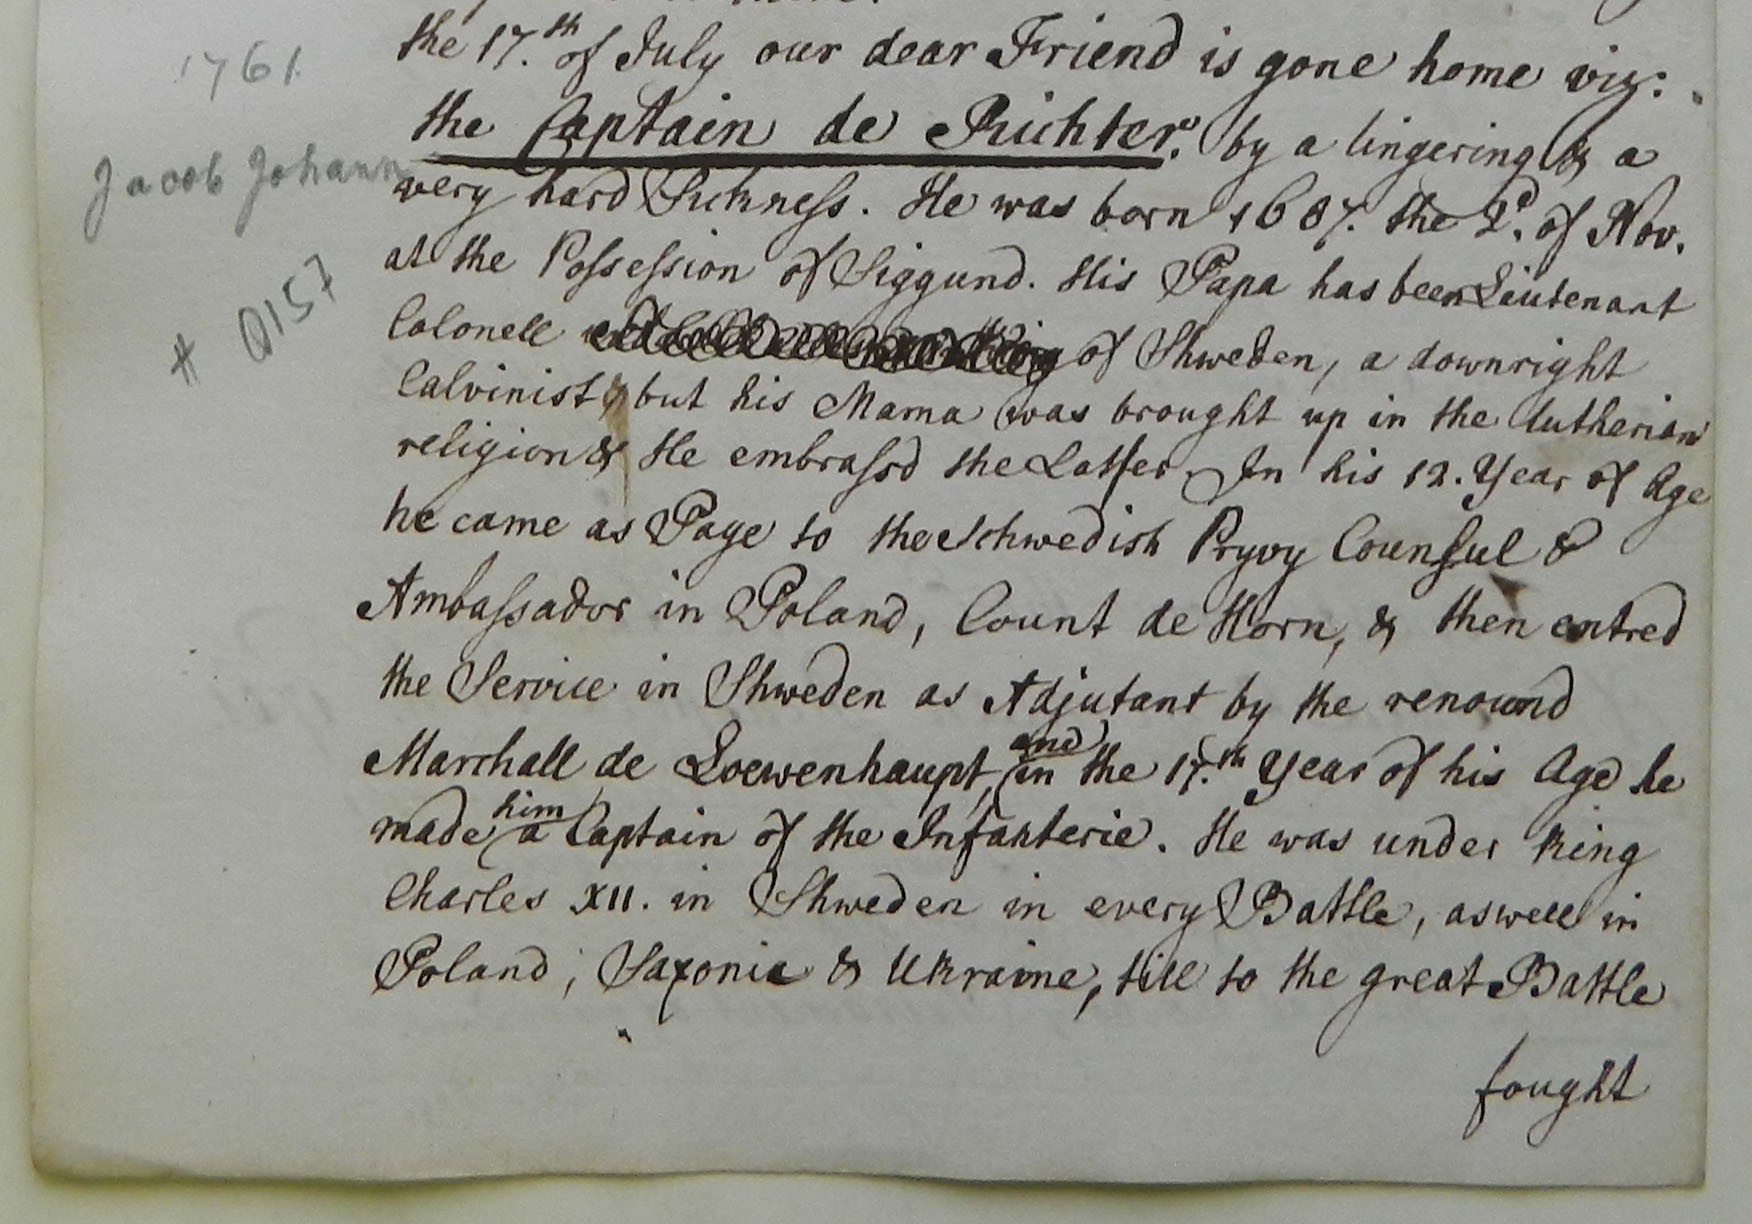 1761
Jacob Johann
# Q157
the 17.th of July our dear Friend is gone home viz:
the Captain de Richter. by a lingering & a
very hard Sickness. He was born 1687. the 2d. of Nov.
at the Possession of Siggund. His Papa has been Lieutenant
Colonell of Shweden, a downright
Calvinist, but his Mama was brought up in the Lutherian
religion & He embrass'd the Latter. In his 12. Year of Age
he came as Page to the Schwedish Pryvy Counsul &
Ambassador in Poland, Count de Horn, & then entred
the Service in Shweden as Adjutant by the renound
Marschall de Loewenhaupt, and in the 17.th Year of his Age he
made him a Captain of the Infanterie. He was under King
Charles XII. in Shweden in every Battle, aswell in
Poland, Saxonia & Ukraine, till to the great Battle
fought